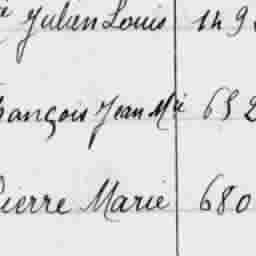 Julien Louis 149
françois Jean Mie 652
Pierre Marie 680